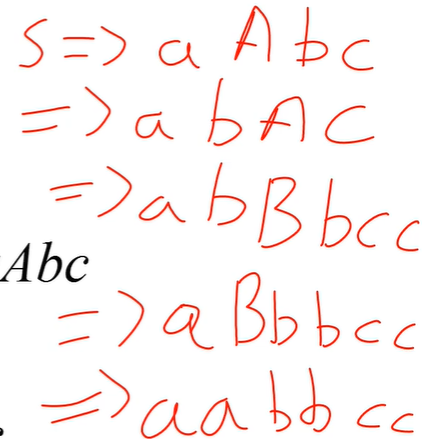 S => a A b c
=> a b A C
=> a b B b c c
Abc
=> a B b b c c
=> a a b b c c